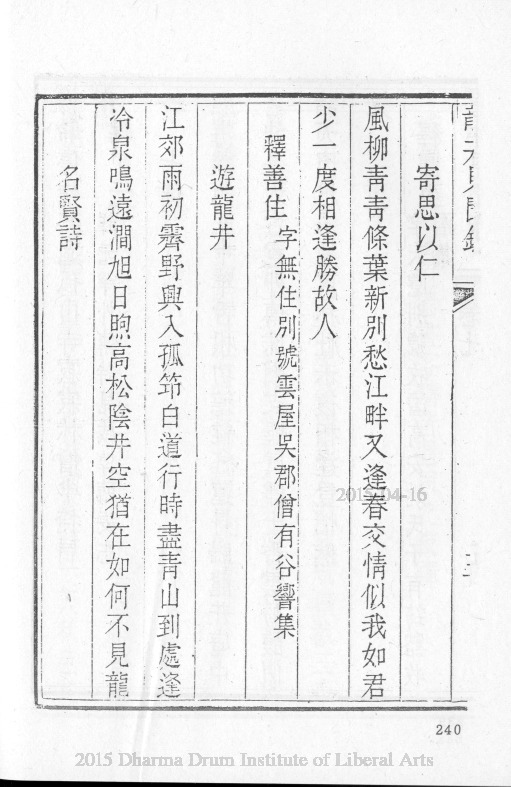 龍井見聞錄
寄思以仁
風柳青青條葉新別愁江畔又逢春交情似我如君
少一度相逢勝故人
釋善住 字無住別號雲屋吳郡僧有谷響集
遊龍井
江郊雨初霽野興入孤筇白道行時盡青山到處逢
冷泉鳴遠澗旭日煦高松陰井空猶在如何不見龍
名賢詩
240
2015-04-16
2015 Dharma Drum Institute of Liberal Arts